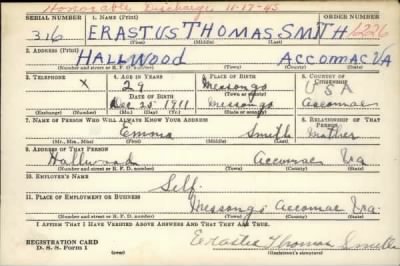 Honorable Discharge 11-17-45
SERIAL NUMBER 1. NAME (Print) ORDER NUMBER
316 ERASTUS THOMAS SMITH 1226
(First) (Middle) (Last)
2. ADDRESS (Print)
HALLWOOD ACCOMAC VA
(Number and street or R. F. D. number) (Town) (County) (State)
3. TELEPHONE 4. AGE IN YEARS 5. PLACE OF BIRTH 6. COUNTRY OF CITIZENSHIP
X 29 Messongo USA
DATE OF BIRTH (Town or county)
Dec 25 1911 Messongo Accomac
(Exchange) (Number) (Mo.) (Day) (Yr.) (State or country)
7. NAME OF PERSON WHO WILL ALWAYS KNOW YOUR ADDRESS 8. RELATIONSHIP OF THAT PERSON
Emma Smith Mother
(Mr., Mrs., Miss) (First) (Middle) (Last)
9. ADDRESS OF THAT PERSON
Hallwood Accomac Va
(Number and street or R. F. D. number) (Town) (County) (State)
10. EMPLOYER'S NAME
Self.
11. PLACE OF EMPLOYMENT OR BUSINESS
Messongo Accomac Va.
(Number and street or R. F. D. number) (Town) (County) (State)
I AFFIRM THAT I HAVE VERIFIED ABOVE ANSWERS AND THAT THEY ARE TRUE.
REGISTRATION CARD
D. S. S. Form 1 (over) Erastus Thomas Smith
(Registrant's signature)